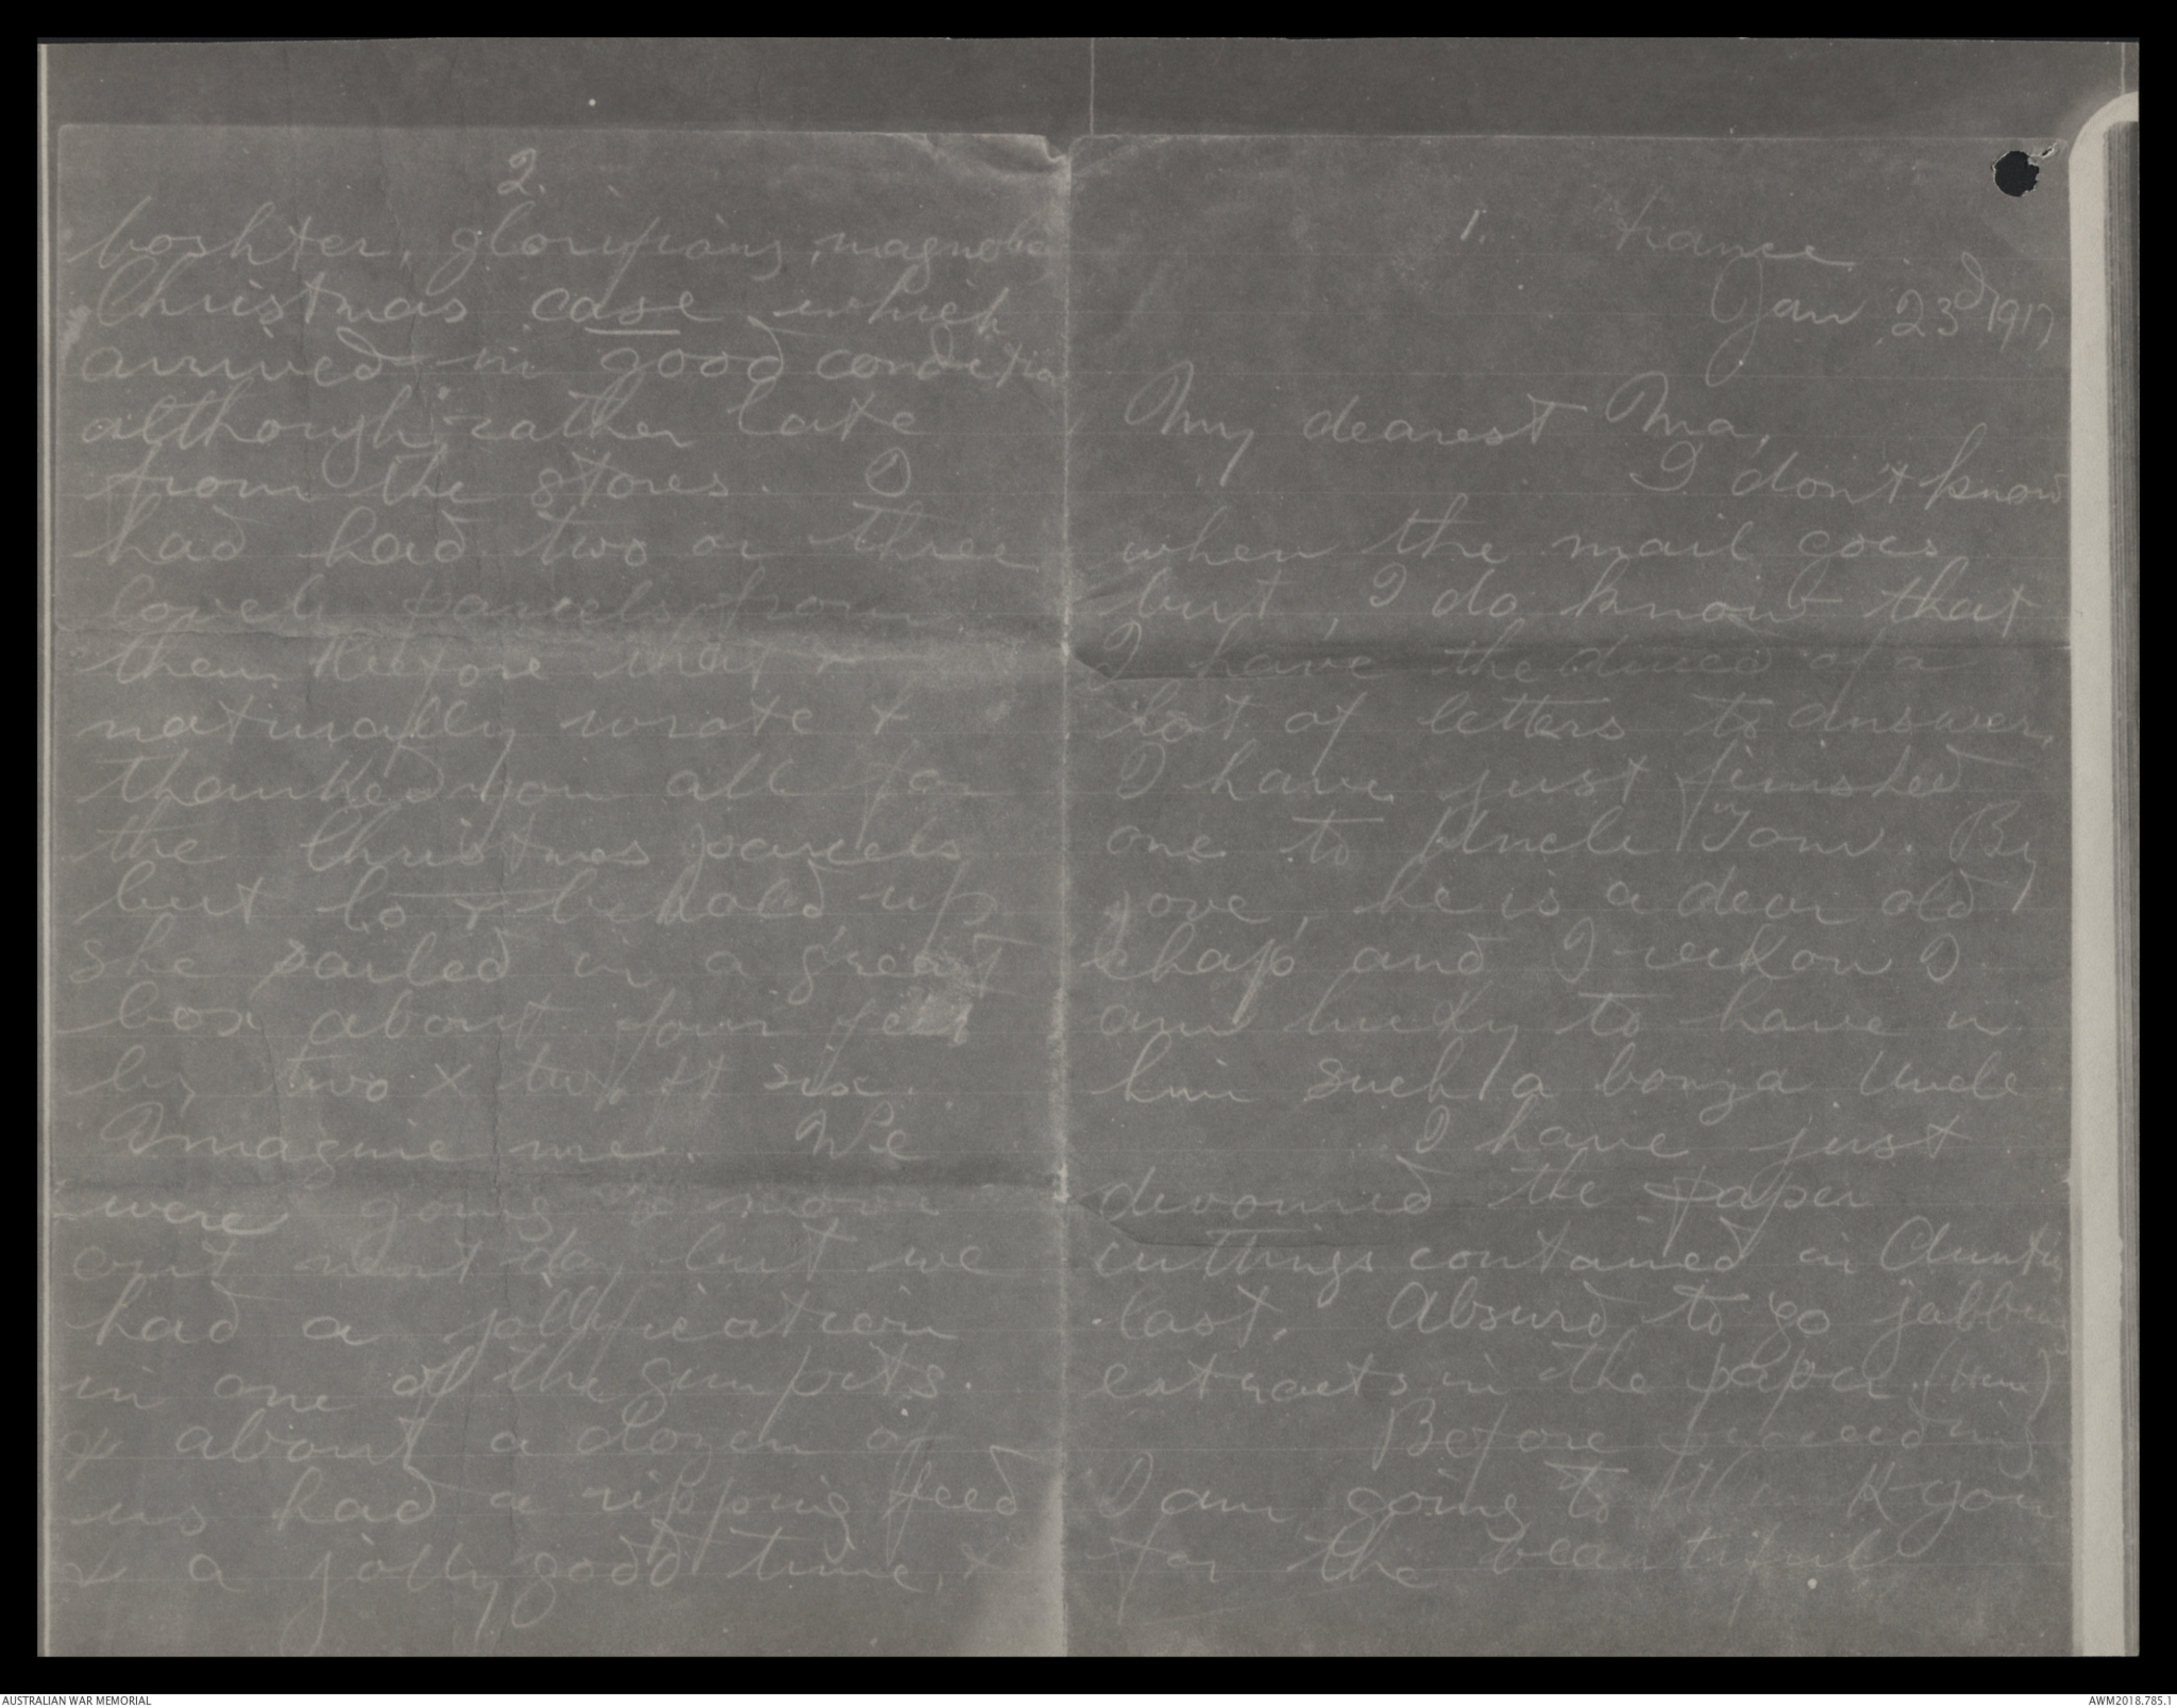 1.
France
Jan 23rd 1917
My dearest Ma,
I don't know
when the mail goes
but, I do know that
I have the duced of a
lot of letters to answer,
I have just finished
one to Uncle Tom. By
jove, he is a dear old
chap and I reckon I
am lucky to have in
him such a bonza Uncle
I have just
devoured the paper
cuttings contained in Aunties
last. Absurd to go jabbing
extracts in the paper. (Hem)
Before proceeding
I am going to thank you
for the beautiful
2.
boshter, glorifrious,
Christmas case which
arrived in good condition
although rather late
from the stores. I
had had two or three
lovely parcels from
them before that &
naturally wrote &
thanked you all for
the Christmas parcels
but lo & behold up
she sailed in a great
box about four feet
by two x two ft six.
Imagine me. We
were going to move
out next day but we
had a jollification
in one of the gunpits.
& about a dozen of
us had a ripping feed
& a jolly good time, &
AUSTRALIAN WAR MEMORIAL
AWM2018.785.1